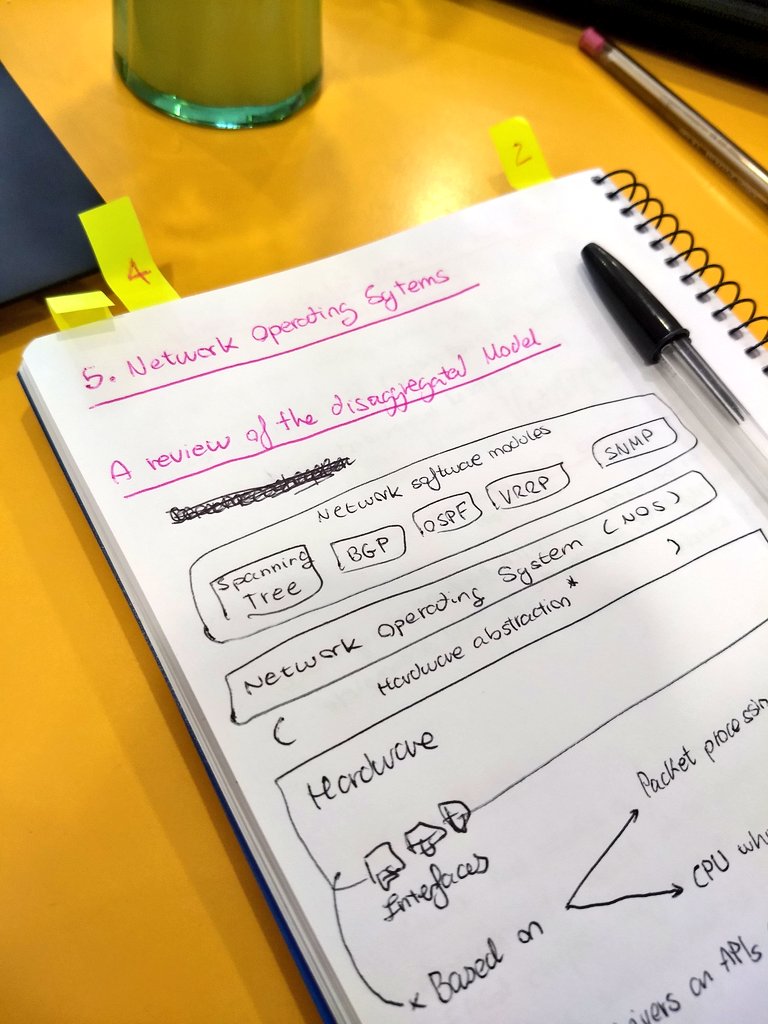 2
4
5. Network Operating Sytems
A review of the disaggregated Model
Network software modules
Spanning Tree
BGP
OSPF
VRRP
SNMP
Network Operating System (NOS)
( Hardware abstraction* )
Hardware
Interfaces
Packet processin
Based on
CPU wh
ivers on APIs